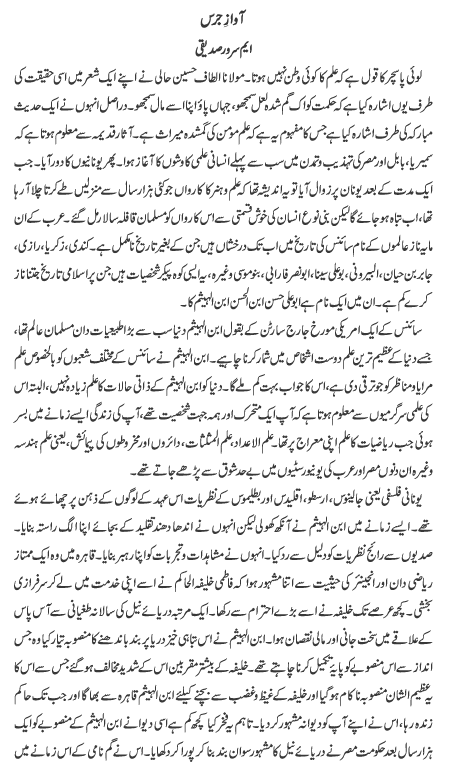 آوازِ جرس
ایم سرور صدیقی
لوئی پاسچر کا قول ہے کہ علم کا کوئی وطن نہیں ہوتا۔ مولانا الطاف حسین حالی نے اپنے ایک شعر میں اسی حقیقت کی
طرف یوں اشارہ کیا ہے کہ حکمت کو اک گم شدہ لعل سمجھو، جہاں پاؤ اپنا اسے مال سمجھو۔ دراصل انہوں نے ایک حدیث
مبارکہ کی طرف اشارہ کیا ہے جس کا مفہوم یہ ہے کہ علم مؤمن کی گمشدہ میراث ہے۔ آثار قدیمہ سے معلوم ہوتا ہے کہ
سمیریا، بابل اور مصر کی تہذیب و تمدن میں سب سے پہلے انسانی علمی کاوشوں کا آغاز ہوا۔ پھر یونانیوں کا دور آیا۔ جب
ایک مدت کے بعد یونان پر زوال آیا تو یہ اندیشہ تھا کہ علم و ہنر کا کارواں جو کئی ہزار سال سے منزلیں طے کرتا چلا آ رہا
تھا، اب تباہ ہو جائے گا لیکن بنی نوع انسان کی خوش قسمتی سے اس کارواں کو مسلمان قافلہ سالار مل گئے۔ عرب کے ان
مایہ ناز عالموں کے نام سائنس کی تاریخ میں اب تک درخشاں ہیں جن کے بغیر تاریخ نامکمل ہے۔ کندی، زکریا، رازی،
جابر بن حیان، البیرونی، بوعلی سینا، ابونصر فارابی، بنو موسی وغیرہ، یہ ایسی کوہ پیکر شخصیات ہیں جن پر اسلامی تاریخ جتنا ناز
کرے کم ہے۔ ان میں ایک نام ہے ابو علی حسن ابن الحسن ابن الہیثم کا۔
سائنس کے ایک امریکی مورخ جارج سارٹن کے بقول ابن الہیثم دنیا سب سے بڑا طبیعیات دان مسلمان عالم تھا،
جسے دنیا کے عظیم ترین علم دوست اشخاص میں شمار کرنا چاہیے۔ ابن الہیثم نے سائنس کے مختلف شعبوں کو بالخصوص علم
مرایا و مناظر کو جو ترقی دی ہے، اس کا جواب بہت کم ملے گا۔ دنیا کو ابن الہیثم کے ذاتی حالات کا علم زیادہ نہیں، البتہ اس
کی علمی سرگرمیوں سے معلوم ہوتا ہے کہ آپ ایک متحرک اور ہمہ جہت شخصیت تھے، آپ کی زندگی ایسے زمانے میں بسر
ہوئی جب ریاضیات کا علم اپنی معراج پر تھا۔ علم الاعداد، علم المثلثات، دائروں اور مخروطوں کی پیمائش، یعنی علم ہندسہ
وغیرہ ان دنوں مصر اور عرب کی یونیورسٹیوں میں بے حد شوق سے پڑھے جاتے تھے۔
یونانی فلسفی یعنی جالینوس، ارسطو، اقلیدس اور بطلیموس کے نظریات اس عہد کے لوگوں کے ذہن پر چھائے ہوئے
تھے۔ ایسے زمانے میں ابن الہیثم نے آنکھ کھولی لیکن انہوں نے اندھا دھند تقلید کے بجائے اپنا الگ راستہ بنایا۔
صدیوں سے رائج نظریات کو دلیل سے رد کیا۔ انہوں نے مشاہدات و تجربات کو اپنا رہبر بنایا۔ قاہرہ میں وہ ایک ممتاز
ریاضی دان اور انجینئر کی حیثیت سے اتنا مشہور ہوا کہ فاطمی خلیفہ الحاکم نے اسے اپنی خدمت میں لے کر سرفرازی
بخشی۔ کچھ عرصے تک خلیفہ نے اسے بڑے احترام سے رکھا۔ ایک مرتبہ دریائے نیل کی سالانہ طغیانی سے آس پاس
کے علاقے میں سخت جانی اور مالی نقصان ہوا۔ ابن الہیثم نے اس تباہی خیز دریا پر بند باندھنے کا منصوبہ تیار کیا وہ جس
انداز سے اس منصوبے کو پایہ تکمیل کرنا چاہتے تھے۔ خلیفہ کے بیشتر مقربین اس کے شدید مخالف ہو گئے جس سے اس کا
یہ عظیم الشان منصوبہ ناکام ہو گیا اور خلیفہ کے غیظ و غضب سے بچنے کیلئے ابن الہیثم قاہرہ سے بھاگا اور جب تک حاکم
زندہ رہا، اس نے اپنے آپ کو دیوانہ مشہور کر دیا۔ تاہم یہ فخر کیا کچھ کم ہے اسی دیوانے ابن الہیثم کے منصوبے کو ایک
ہزار سال بعد حکومت مصر نے دریائے نیل کا مشہور سوان بند بنا کر پورا کر دکھایا۔ اس نے گم نامی کے اس زمانے میں